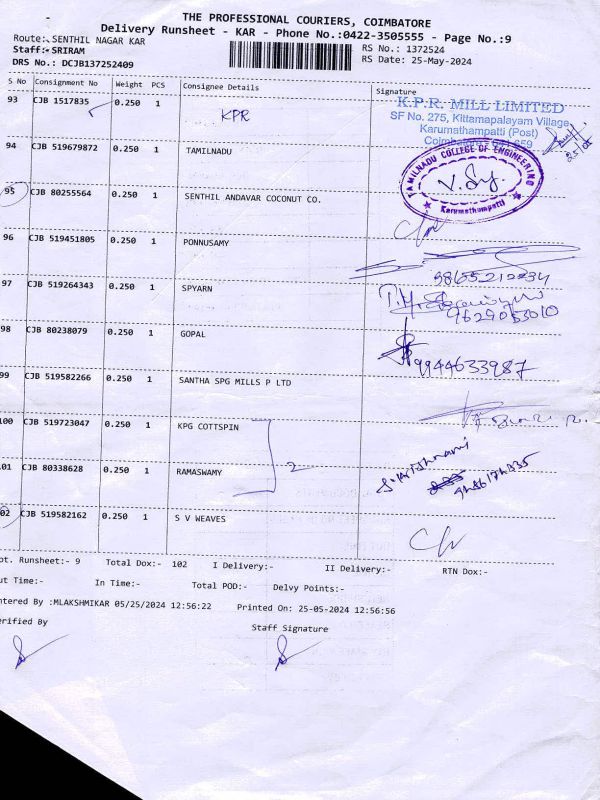 THE PROFESSIONAL COURIERS, COIMBATORE
Delivery Runsheet - KAR - Phone No.:0422-3505555 - Page No.:9
Route: SENTHIL NAGAR KAR
RS No.: 1372524
Staff:- SRIRAM
RS Date: 25-May-2024
DRS No.: DCJB137252409
S No Consignment No Weight PCS Consignee Details Signature
93 CJB 1517835 0.250 1 KPR
K.P.R. MILL LIMITED
SF No. 275, Kittampalayam Village,
Karumathampatti (Post)
Coimbatore - 641 659
94 CJB 519679872 0.250 1 TAMILNADU
TAMILNADU COLLEGE OF ENGINEERING
Karumathampatti
95 CJB 80255564 0.250 1 SENTHIL ANDAVAR COCONUT CO.
96 CJB 519451805 0.250 1 PONNUSAMY
97 CJB 519264343 0.250 1 SPYARN
9629053010
98 CJB 80238079 0.250 1 GOPAL
9944633987
99 CJB 519582266 0.250 1 SANTHA SPG MILLS P LTD
100 CJB 519723047 0.250 1 KPG COTTSPIN
2
01 CJB 80338628 0.250 1 RAMASWAMY
S. Krishnami
02 CJB 519582162 0.250 1 S V WEAVES
pt. Runsheet:- 9 Total Dox:- 102 I Delivery:- II Delivery:- RTN Dox:-
ut Time:- In Time:- Total POD:- Delvy Points:-
ntered By :MLAKSHMIKAR 05/25/2024 12:56:22 Printed On: 25-05-2024 12:56:56
erified By Staff Signature